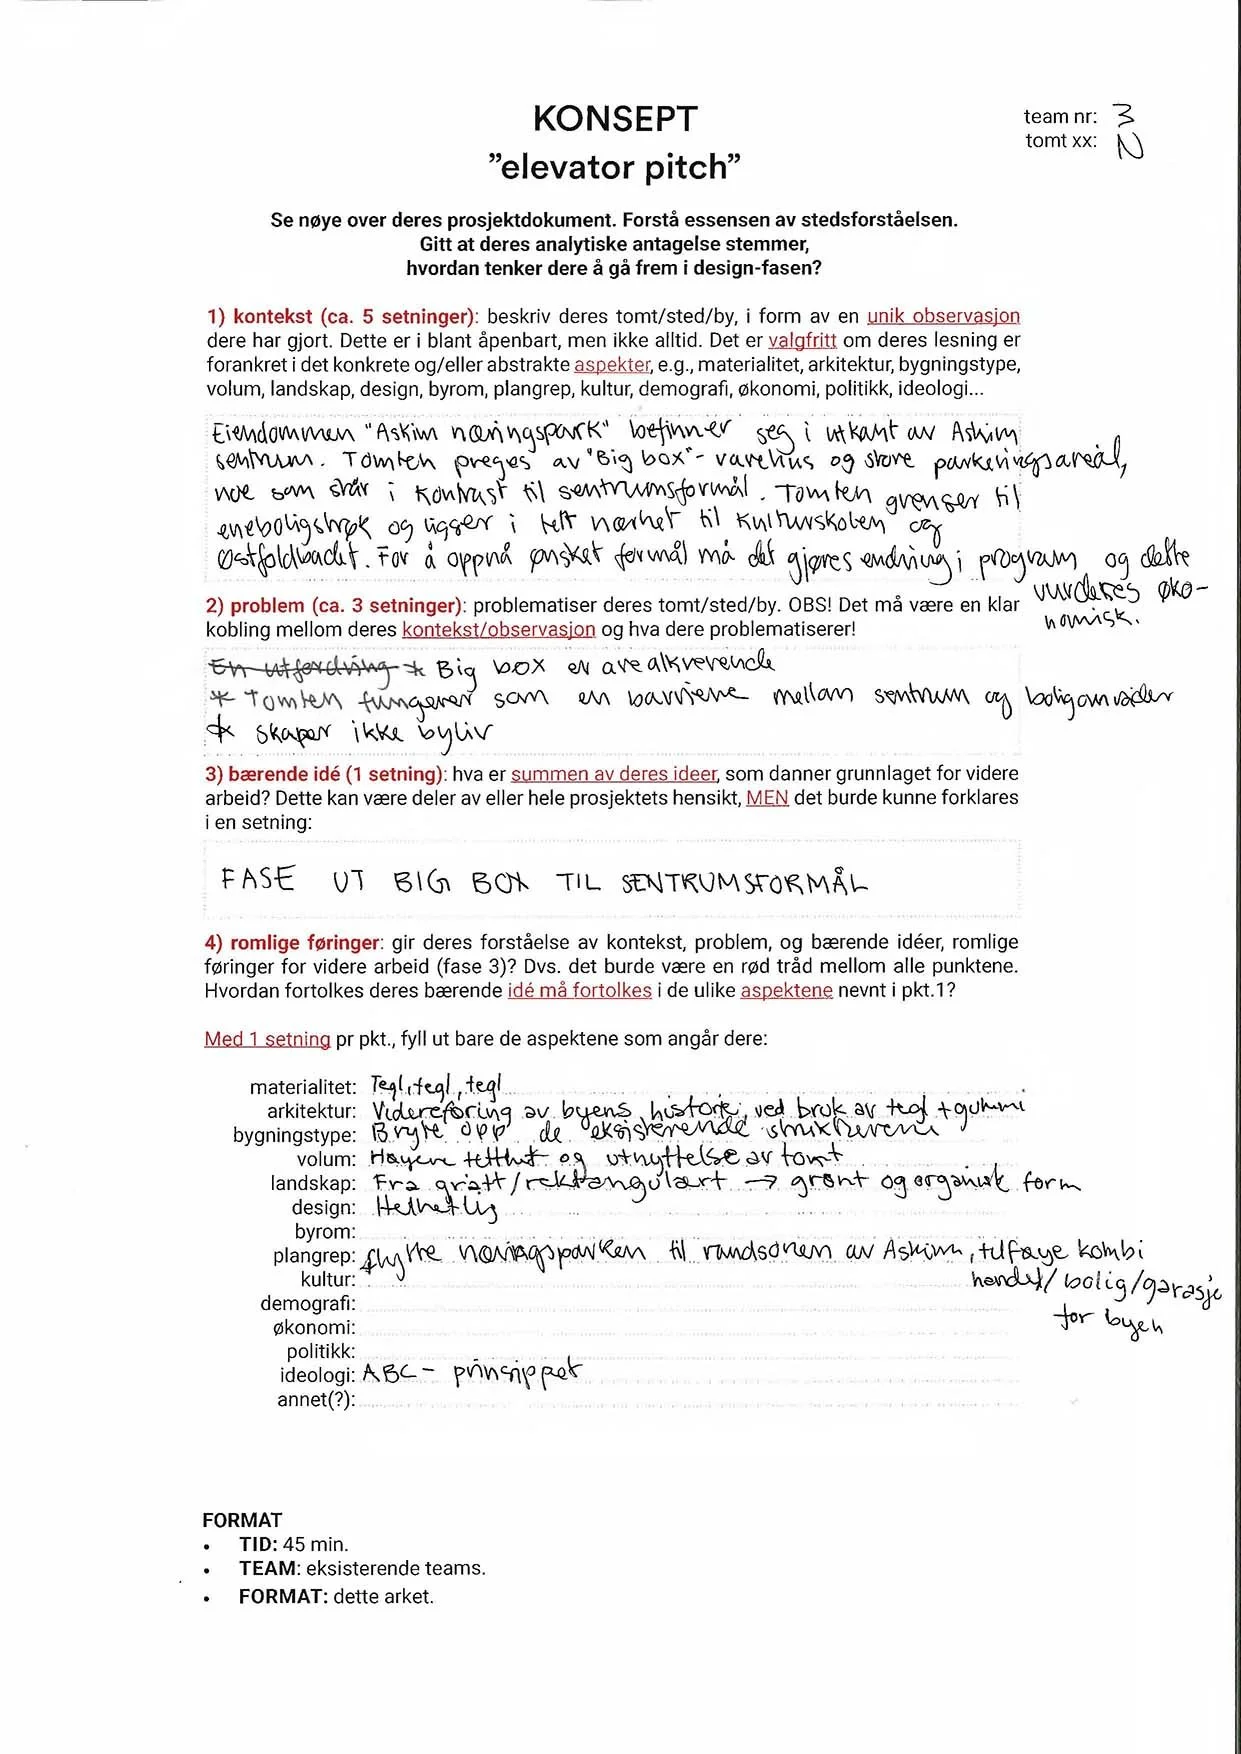 KONSEPT
"elevator pitch"
team nr: 3
tomt xx: N
Se nøye over deres prosjektdokument. Forstå essensen av stedsforståelsen.
Gitt at deres analytiske antagelse stemmer,
hvordan tenker dere å gå frem i design-fasen?
1) kontekst (ca. 5 setninger): beskriv deres tomt/sted/by, i form av en unik observasjon
dere har gjort. Dette er i blant åpenbart, men ikke alltid. Det er valgfritt om deres lesning er
forankret i det konkrete og/eller abstrakte aspekter, e.g., materialitet, arkitektur, bygningstype,
volum, landskap, design, byrom, plangrep, kultur, demografi, økonomi, politikk, ideologi...
Eiendommen "Askim næringspark" befinner seg i utkant av Askim
sentrum. Tomten preges av "Big box"- varehus og store parkeringsareal,
noe som står i kontrast til sentrumsformål. Tomten grenser til
eneboligstrøk og ligger i tett nærhet til Kulturskolen og
Østfoldbadet. For å oppnå ønsket formål må det gjøres endring i program og dette
vurderes øko-
nomisk.
2) problem (ca. 3 setninger): problematiser deres tomt/sted/by. OBS! Det må være en klar
kobling mellom deres kontekst/observasjon og hva dere problematiserer!
En utfordring * Big box er arealkrevende
* Tomten fungerer som en barriere mellom sentrum og boligområder
* skaper ikke byliv
3) bærende idé (1 setning): hva er summen av deres ideer, som danner grunnlaget for videre
arbeid? Dette kan være deler av eller hele prosjektets hensikt, MEN det burde kunne forklares
i en setning:
FASE UT BIG BOX TIL SENTRUMSFORMÅL
4) romlige føringer: gir deres forståelse av kontekst, problem, og bærende idéer, romlige
føringer for videre arbeid (fase 3)? Dvs. det burde være en rød tråd mellom alle punktene.
Hvordan fortolkes deres bærende idé må fortolkes i de ulike aspektene nevnt i pkt.1?
Med 1 setning pr pkt., fyll ut bare de aspektene som angår dere:
materialitet: Tegl, tegl, tegl
arkitektur: Videreføring av byens historie, ved bruk av tegl + gummi
bygningstype: Bryte opp de eksisterende strukturene
volum: Høyere tetthet og utnyttelse av tomt
landskap: Fra grått/rektangulært → grønt og organisk form
design: Helhetlig
byrom:
plangrep: flytte næringsparken til randsonen av Askim, tilføye kombi
handel/bolig/garasje
for byen
kultur:
demografi:
økonomi:
politikk:
ideologi: ABC - prinsippet
annet(?):
FORMAT
• TID: 45 min.
• TEAM: eksisterende teams.
• FORMAT: dette arket.